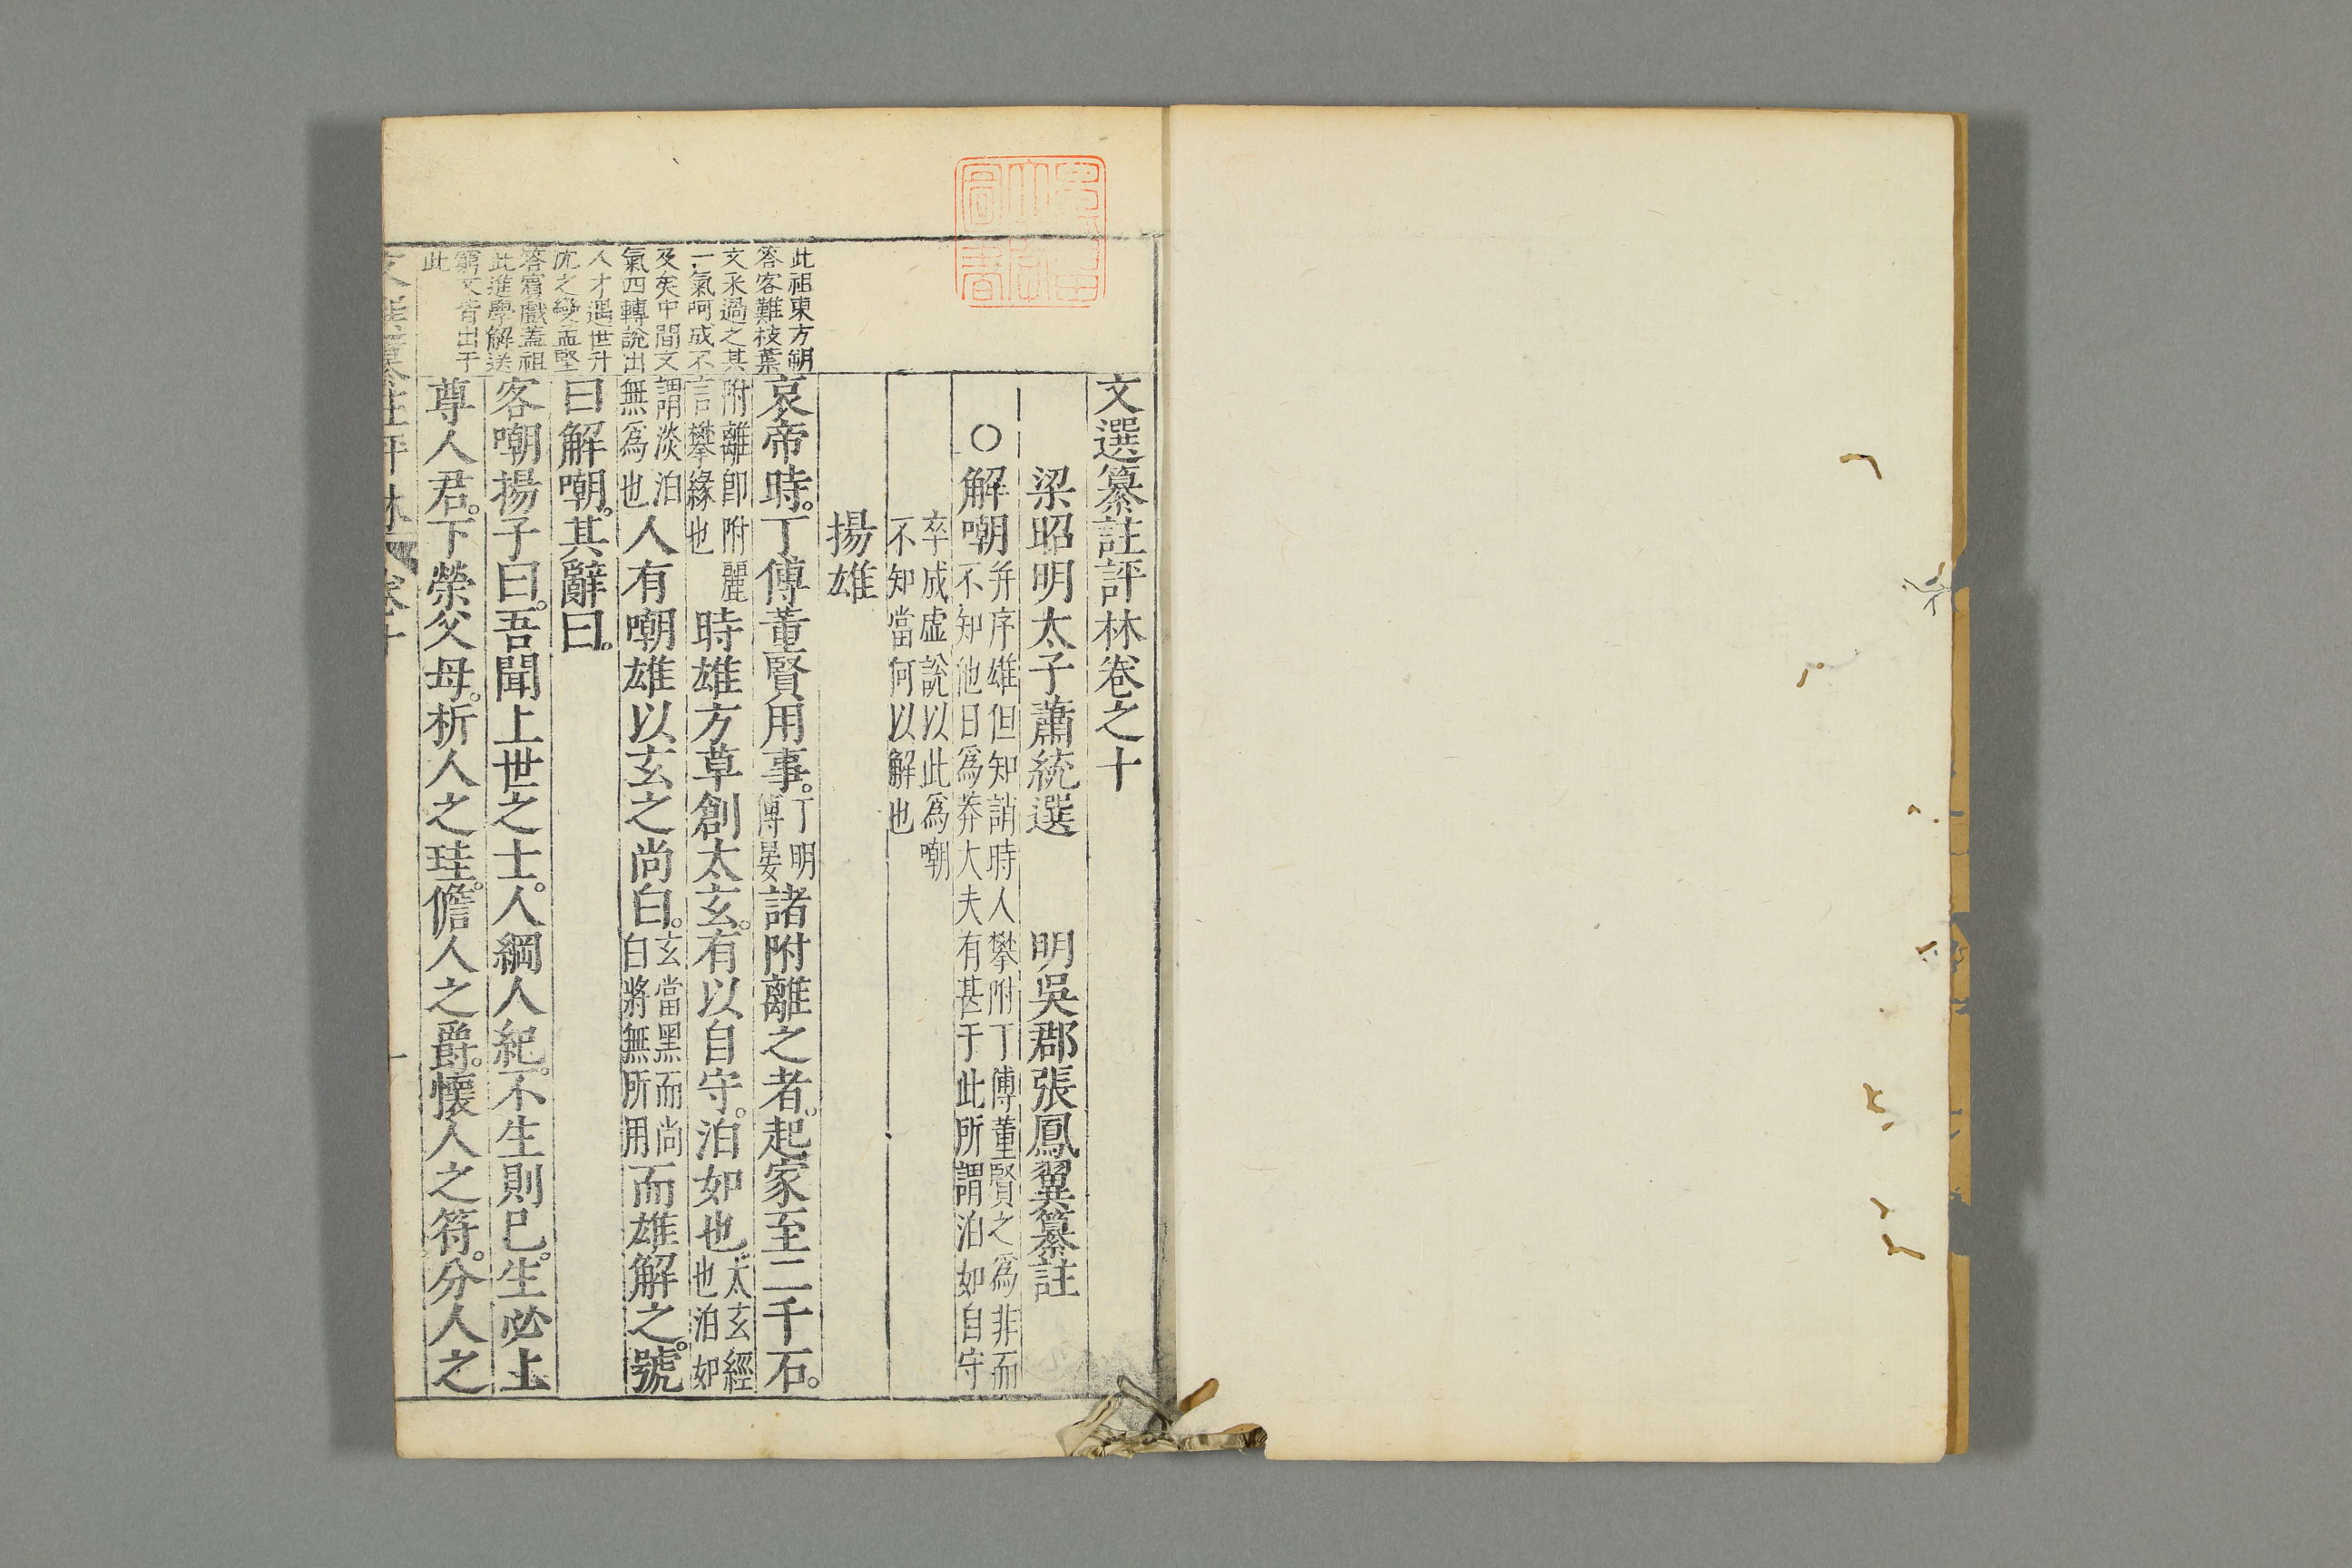 文選纂註評林卷之十
梁昭明太子蕭統選　明吳郡張鳳翼纂註
○解嘲并序雄但知誚時人攀附丁傅董賢之爲非而
不知他日爲莽大夫有甚于此所謂泊如自守
卒成虛說以此爲嘲
不知當何以解也
揚雄
哀帝時。丁傅董賢用事。丁明
傅晏諸附離之者。起家至二千石。
附離卽附麗
言攀緣也時雄方草創太玄。有以自守。泊如也。太玄經
也泊如
謂淡泊
無爲也人有嘲雄以玄之尚白。玄當黑而尚
白將無所用而雄解之。號
曰解嘲。其辭曰。
客嘲揚子曰。吾聞上世之士。人綱人紀。不生則已。生必上
尊人君。下榮父母。析人之珪。儋人之爵。懷人之符。分人之
此祖東方朔
答客難枝葉
文采過之其
一氣呵成不
及矣中間文
氣四轉說出
人才遇世升
沉之變孟堅
答賓戲蓋祖
此進學解送
窮文皆出于
此